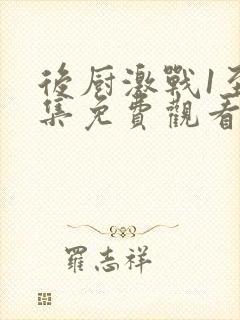 後厨激戰1至
集免費觀看
羅志祥